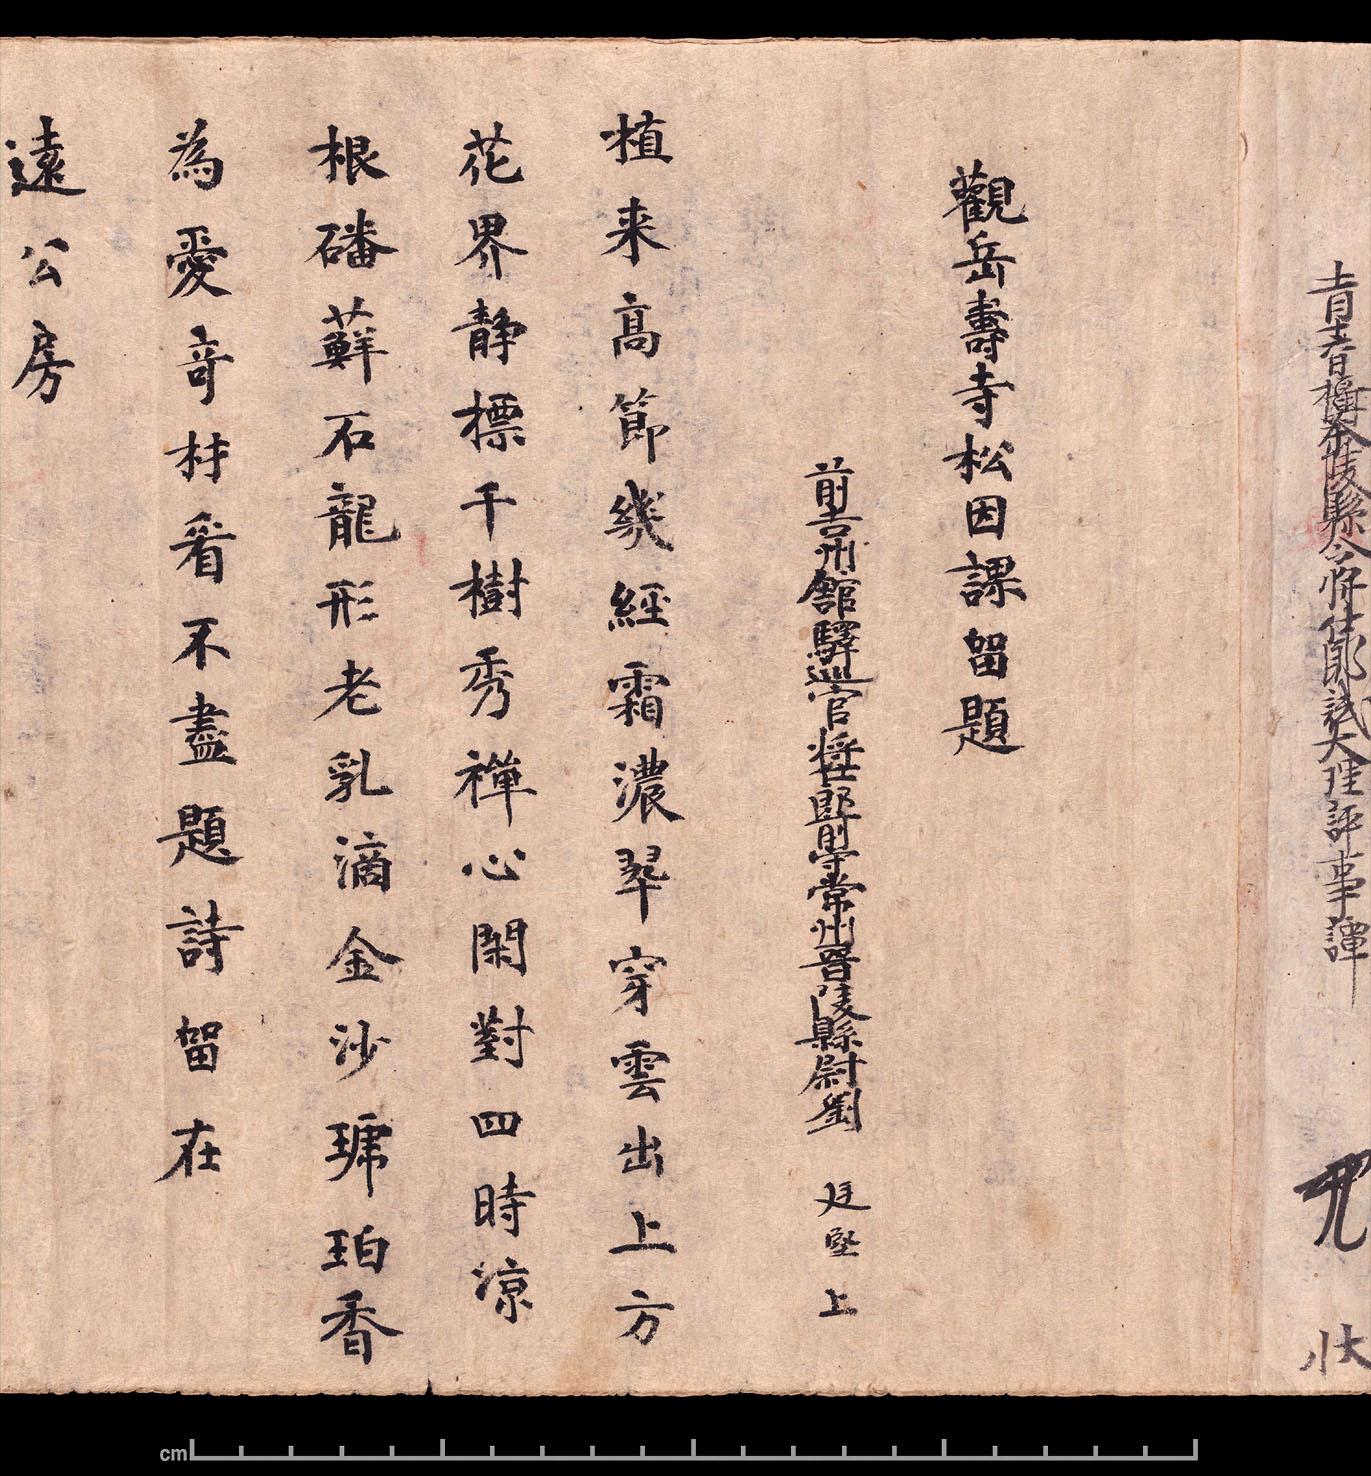 青春攝茶陵縣令將仕郎試大理評事譚 状
觀岳壽寺松因課留題
前吉州館驛巡官將仕郎前守常州晉陵縣尉劉 廷堅 上
植来高節幾經霜濃翠穿雲出上方
花界静標千樹秀禪心閑對四時凉
根磻蘚石龍形老乳滴金沙琥珀香
為愛竒材看不盡題詩留在
遠公房